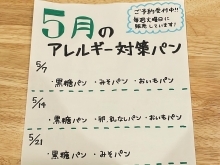 5月の
ご予約受付中!!
毎週火曜日に
販売しています!
アレルギー対策パン
5/7
・黒糖パン ・みそパン ・おいもパン
5/14
・黒糖パン ・卵、乳なしパン ・おいもパン
5/21
・黒糖パン ・みそパン